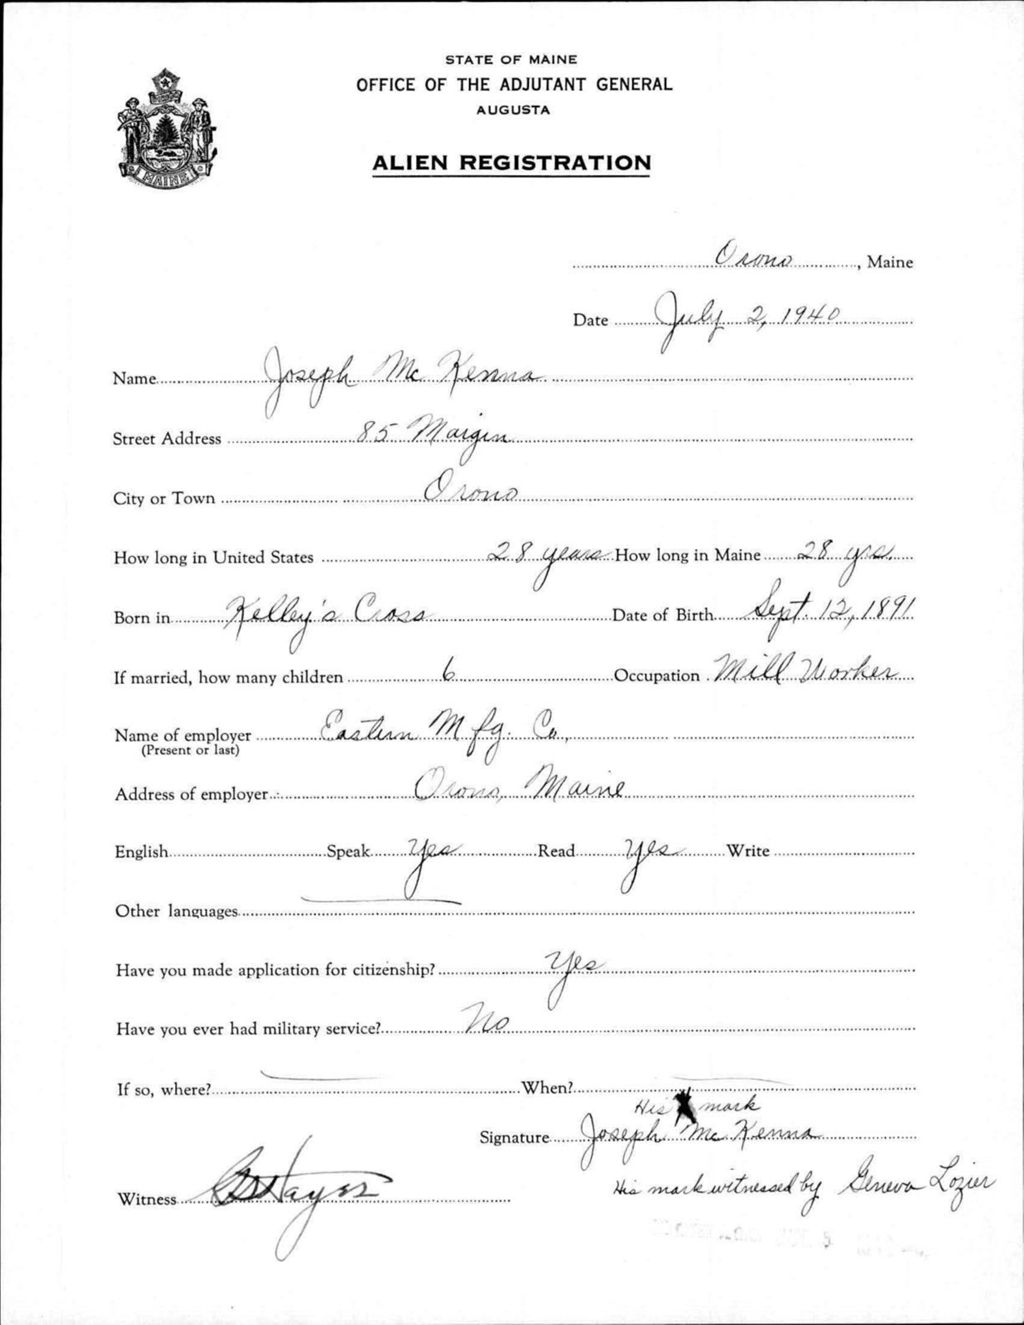 STATE OF MAINE
OFFICE OF THE ADJUTANT GENERAL
AUGUSTA
ALIEN REGISTRATION
MAINE
Orono, Maine
Date July 2, 1940
Name Joseph McKenna
Street Address 85 Margin
City or Town Orono
How long in United States 28 years How long in Maine 28 yrs.
Born in Kelley's Cross Date of Birth Sept. 12, 1891
If married, how many children 6 Occupation Mill Worker
Name of employer Eastern Mfg. Co.,
(Present or last)
Address of employer Orono, Maine
English Speak Yes Read Yes Write
Other languages
Have you made application for citizenship? Yes
Have you ever had military service? No
If so, where? When?
His X mark
Signature Joseph McKenna
Witness Hayes
His mark witnessed by Geneva Lozier